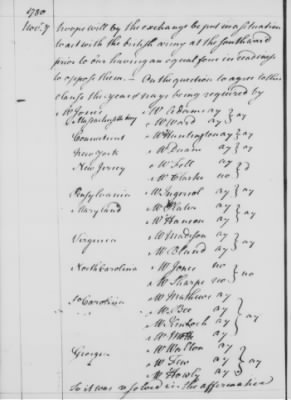 1780
Nov. 7 troops will by the exchange be put in a situation
to act with the british army at the southward
prior to our having an equal force in readiness
to oppose them. — On the question to agree to this
clause the yeas & nays being required by
Mr Jones
Massachusetts bay Mr Adams ay } ay
Mr Ward ay
Connecticut Mr Huntington ay } ay
New York Mr Duane ay }
New Jersey Mr Fell ay } d
Mr Clarke no
Pensylvania Mr Ingersol ay } ay
Maryland Mr ay } ay
Mr Hanson ay
Virginia Mr Madison ay } ay
Mr Bland ay
North Carolina Mr Jones no } no
Mr Sharpe no
So Carolina Mr Mathews ay } ay
Mr Bee ay
Mr ay
Mr ay
Georgia Mr Walton ay } ay
Mr Few ay
Mr Howly ay
So it was resolved in the affirmative